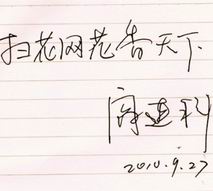 扫花网花香天下
高连科
2010.9.27